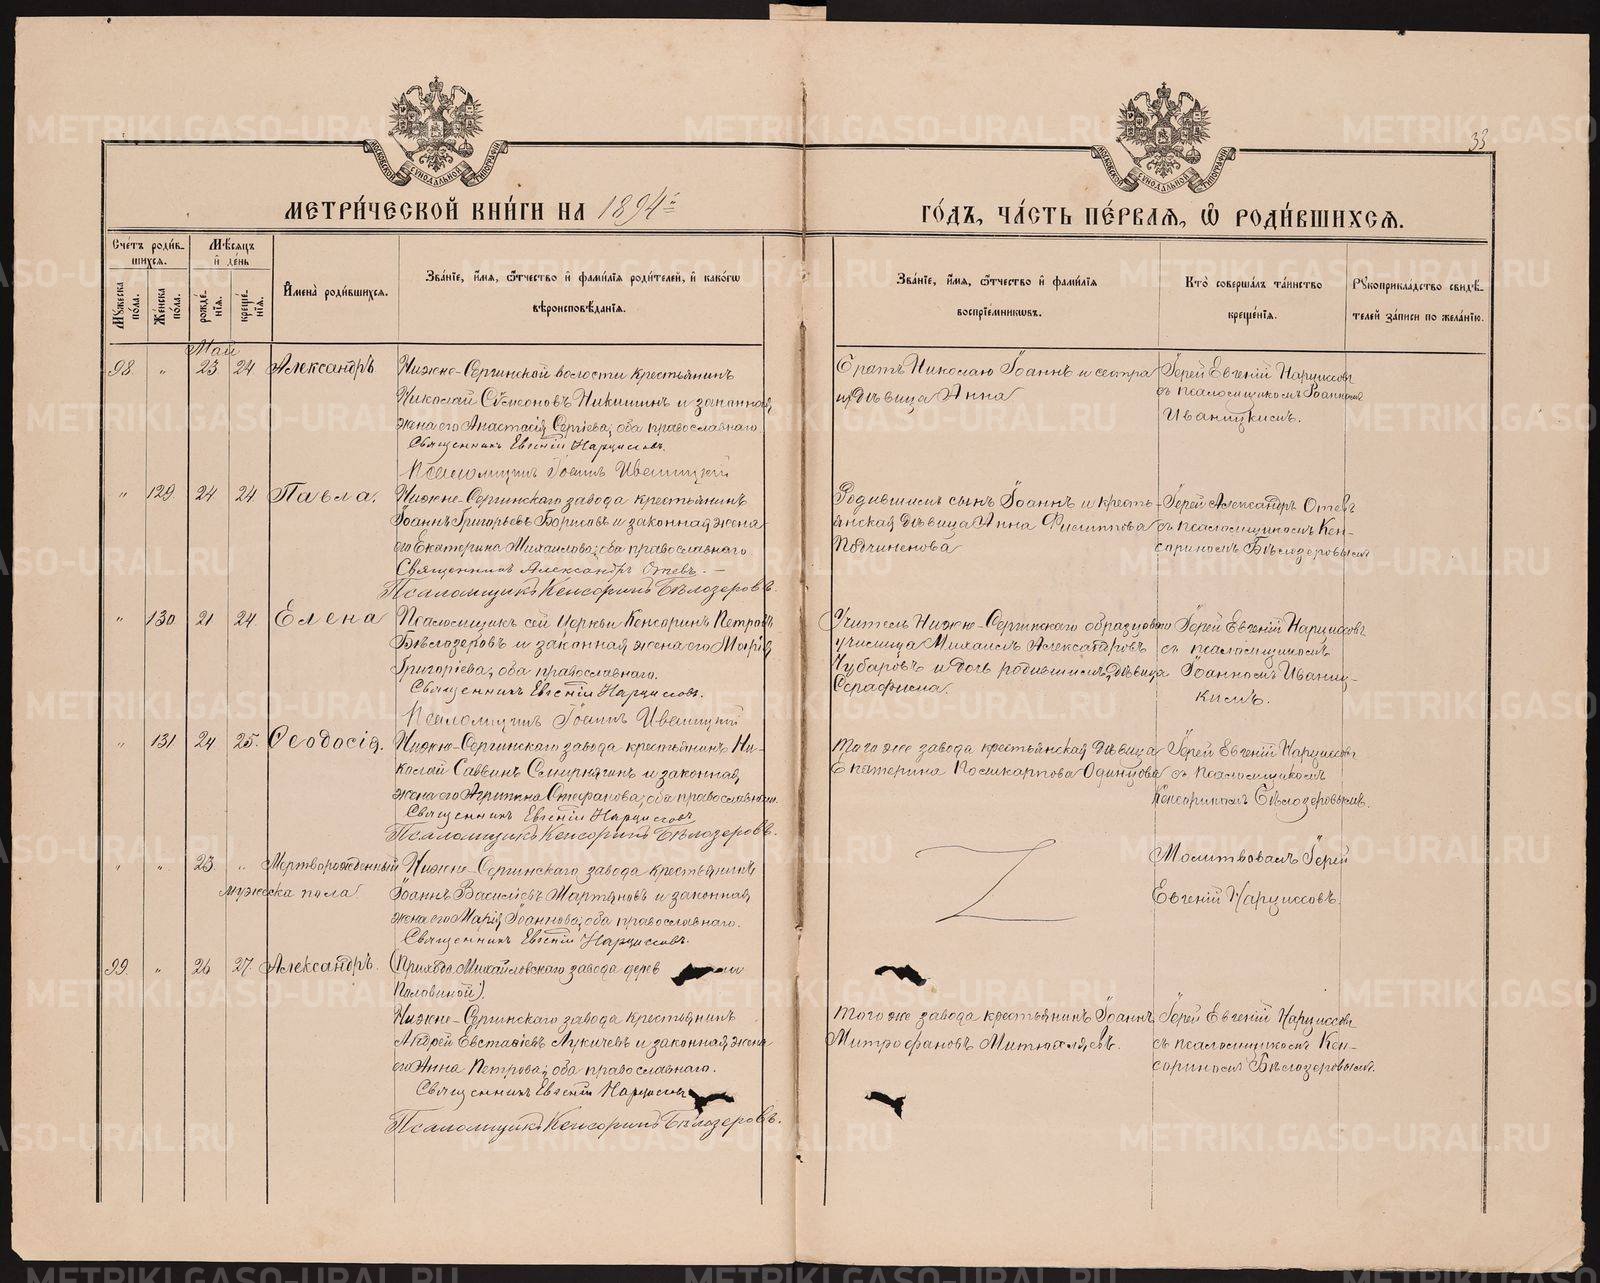 33
МЕТРИ́ЧЕСКОЙ КНИ́ГИ НА 1894й
ГО́ДЪ, ЧА́СТЬ ПЕ́РВАЯ, Ѡ҆ РОДИ́ВШИХСЯ.
МОСКОВСКОЙ СѴНОДАЛЬНОЙ ТИПОГРАФІИ
МОСКОВСКОЙ СѴНОДАЛЬНОЙ ТИПОГРАФІИ
Сче́тъ роди́вшихся.
Мѣ́сяцъ и҆ де́нь
Му́жеска по́ла.
Же́нска по́ла.
рожде́нія.
креще́нія.
И҆мена̀ роди́вшихся.
Зва́ніе, и҆́мя, ѻ҆́тчество и҆ фами́лія роди́телей, и҆ како́гѡ
вѣроисповѣ́данія.
Зва́ніе, и҆́мя, ѻ҆́тчество и҆ фами́лія
воспріе́мникѡвъ.
Кто̀ соверша́лъ та́инство
креще́нія.
Рꙋкоприкла́дство свидѣ́телей за́писи по жела́нію.
Май
98. " 23 24 Александръ
Нижне-Сергинской волости крестьянинъ
Николай Сѵмеоновъ Никишин и законная
жена его Анастасія Сергіева; оба православнаго
Священникъ Евгеній Нарциссовъ.
Псаломщикъ Іоаннъ Иваницкій
Братъ Николаю Іоаннъ и сестра
их дѣвица Анна
Іерей Евгеній Нарциссовъ
съ псаломщикомъ Іоанномъ
Иваницкимъ.
" 129. 24 24 Павла.
Нижне-Сергинскаго завода крестьянинъ
Іоаннъ Григорьевъ Борисовъ и законная жена
его Екатерина Михаилова; оба православнаго
Священникъ Александръ Отевъ. -
Псаломщикъ Кенсоринъ Бѣлозеровъ.
Родившимъ сынъ Іоаннъ и кресть-
янская дѣвица Анна Филиппова
Подчиненова
Іерей Александръ Отевъ
съ псаломщикомъ Кен-
сориномъ Бѣлозеровымъ
" 130 21 24. Елена
Псаломщикъ сей церкви Кенсоринъ Петровъ
Бѣлозеровъ и законная жена его Марія
Григоріева; оба православнаго.
Священникъ Евгеній Нарциссовъ.
Псаломщикъ Іоаннъ Иваницкій
Учитель Нижне-Сергинскаго образцоваго
училища Михаилъ Александровъ
Чубаровъ и дочь родившимъ, дѣвица
Серафима.
Іерей Евгеній Нарциссовъ
съ псаломщикомъ
Іоанномъ Иваниц-
кимъ.
" 131 24 25. Ѳеодосія.
Нижне-Сергинскаго завода крестьянинъ Ни-
колай Саввинъ Смирнягинъ и законная
жена его Агрипина Стефанова; оба православнаго.
Священникъ Евгеній Нарциссовъ
Псаломщикъ Кенсоринъ Бѣлозеровъ.
Того же завода крестьянская дѣвица
Екатерина Поликарпова Одинцова
Іерей Евгеній Нарциссовъ
съ псаломщикомъ
Кенсориномъ Бѣлозеровымъ.
" " 23. " Мертворожденный
мужеска пола
Нижне-Сергинскаго завода крестьянинъ
Іоаннъ Василіевъ Мартьяновъ и законная
жена его Марія Іоаннова; оба православнаго.
Священникъ Евгеній Нарциссовъ.
Молитвовалъ Іерей
Евгеній Нарциссовъ.
99. " 26 27. Александръ.
(Прихода Михайловскаго завода дерев
Половиной).
Нижне-Сергинскаго завода крестьянинъ
Андрей Евстаѳіевъ Лукичевъ и законная жена
его Анна Петрова; оба православнаго.
Священникъ Евгеній Нарциссовъ
Псаломщикъ Кенсоринъ Бѣлозеровъ.
Того же завода крестьянинъ Іоаннъ
Митрофановъ
Іерей Евгеній Нарциссовъ
съ псаломщикомъ Кен-
сориномъ Бѣлозеровымъ.
METRIKI.GASO-URAL.RU